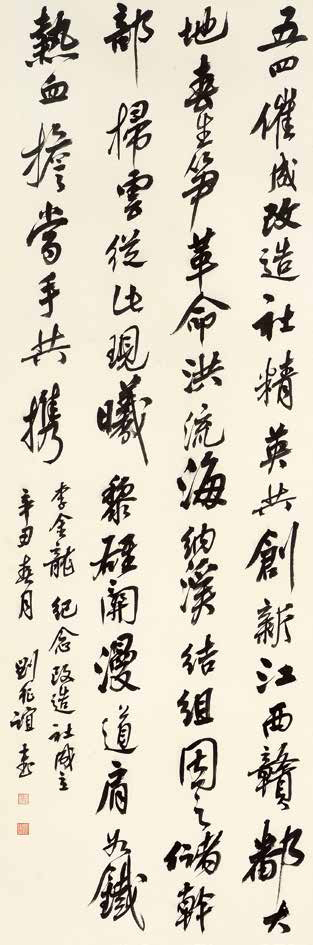 五四催成改造社精英共創新江西贛鄱大
地春生筍革命洪流海納溪結組因之儲幹
部掃雲從此現曦黎碓開漫道肩如鐵
熱血擔當手共攜
李金龍紀念改造社成立
辛丑春月劉花誼書